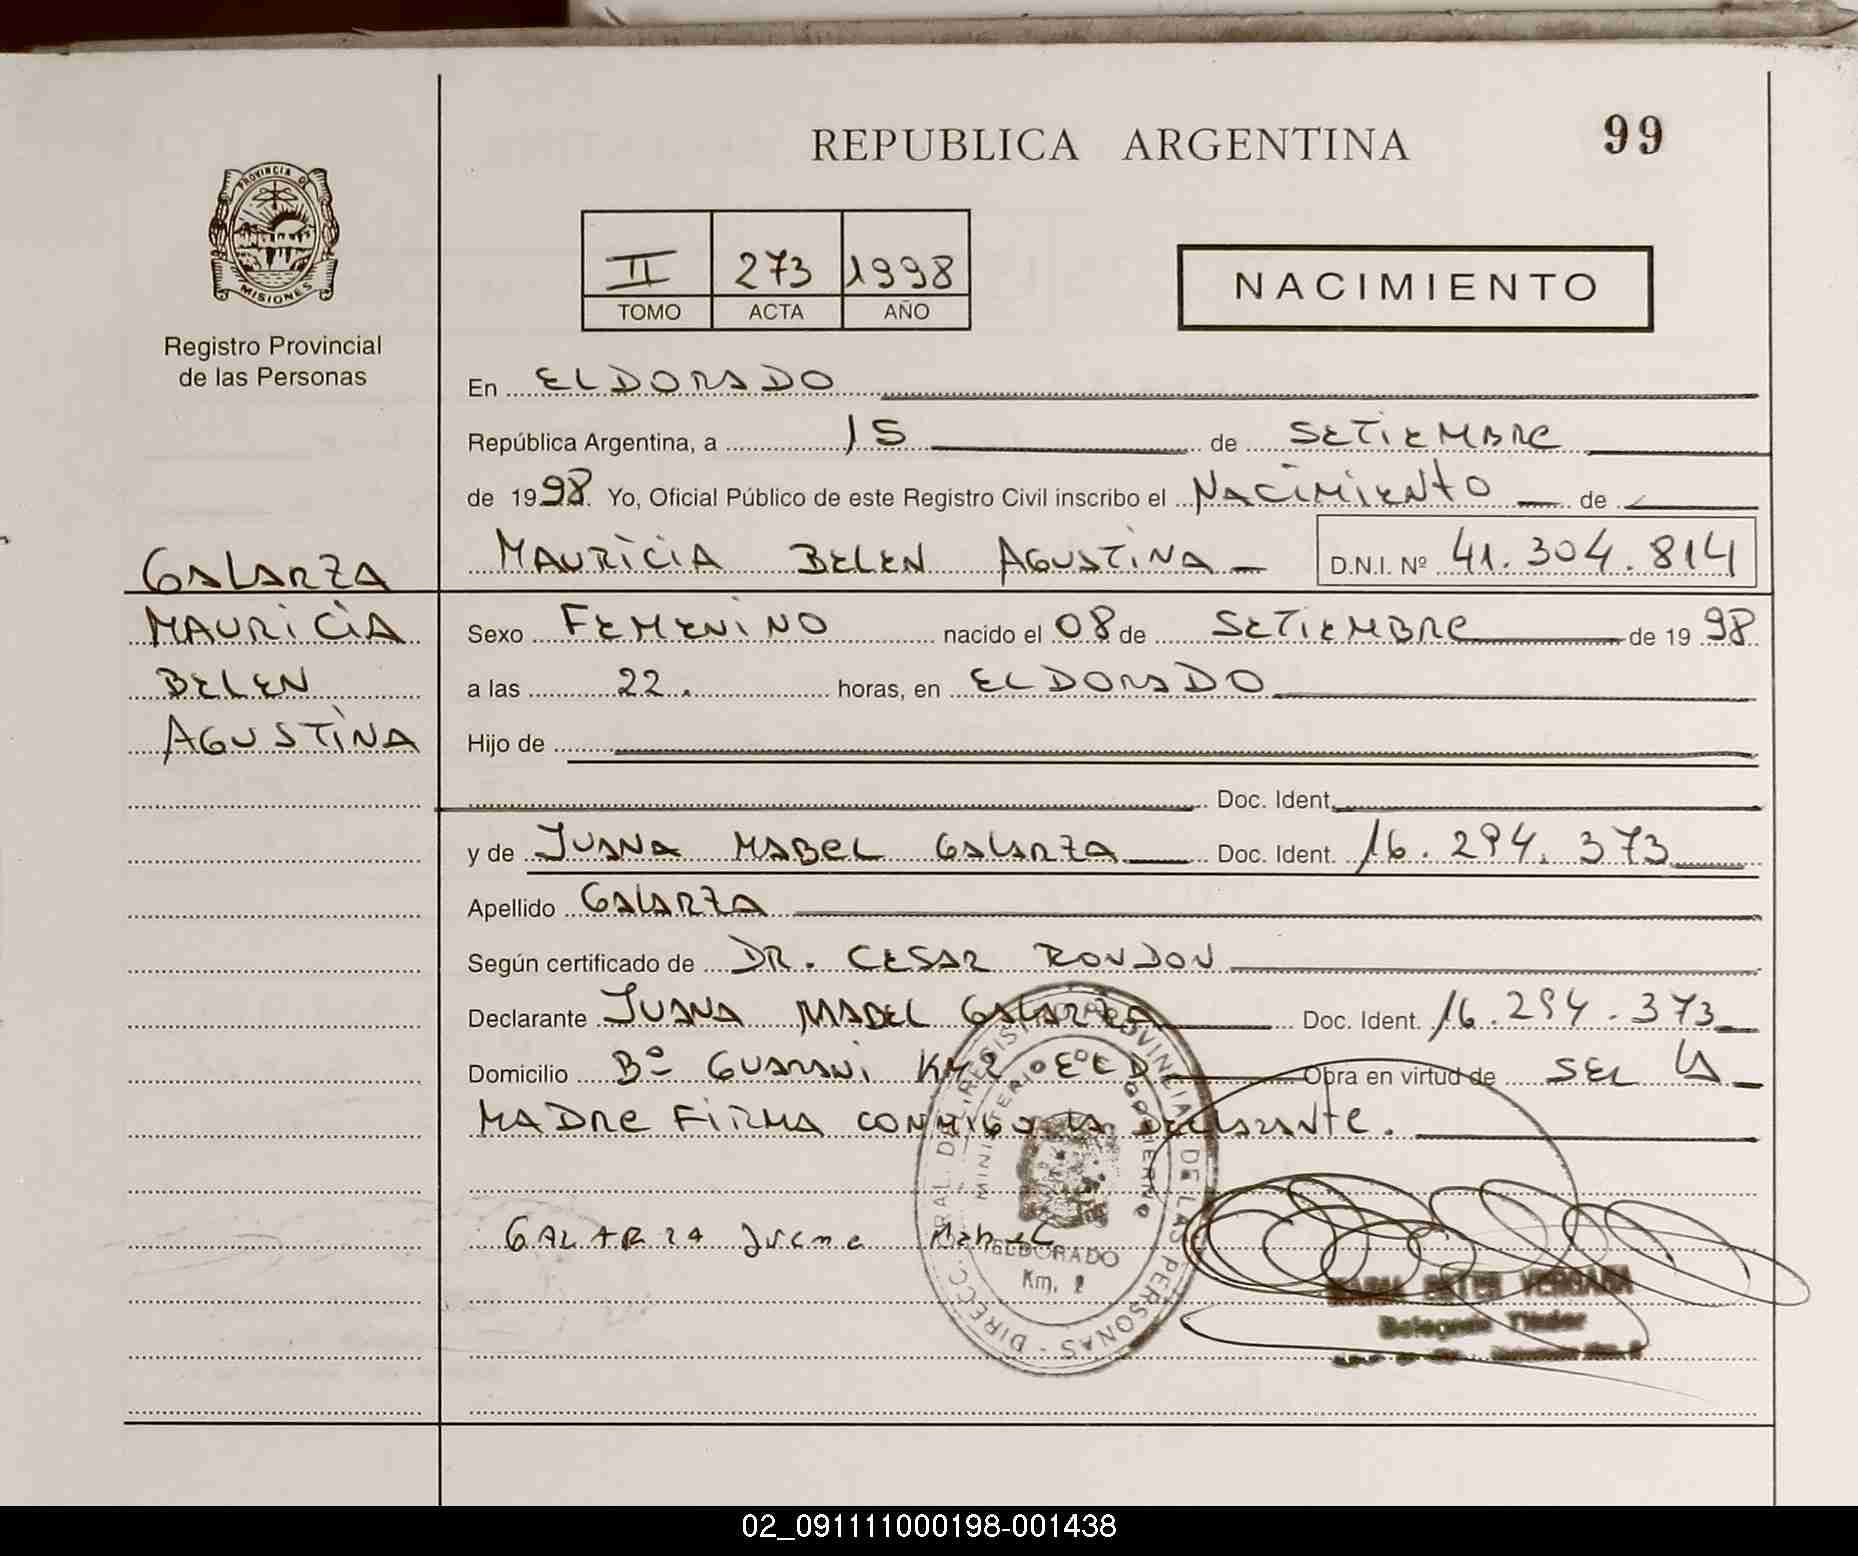 REPUBLICA ARGENTINA
99
PROVINCIA DE
MISIONES
Registro Provincial
de las Personas
II 273 1998
TOMO ACTA AÑO
NACIMIENTO
En ELDORADO
República Argentina, a 15 de SETIEMBRE
de 1998. Yo, Oficial Público de este Registro Civil inscribo el NACIMIENTO de
MAURICIA BELEN AGUSTINA D.N.I. Nº 41.304.814
GALARZA
MAURICIA
BELEN
AGUSTINA
Sexo FEMENINO nacido el 08 de SETIEMBRE de 1998
a las 22. horas, en ELDORADO
Hijo de
Doc. Ident.
y de JUANA MABEL GALARZA Doc. Ident. 16.294.373
Apellido GALARZA
Según certificado de DR. CESAR RONDON
Declarante JUANA MABEL GALARZA Doc. Ident. 16.294.373
Domicilio Bº GUARANI KM2 Obra en virtud de SER LA
MADRE FIRMA CONMIGO LA DECLARANTE.
GALARZA Juana Mabel
DIRECC. GRAL. DEL REGISTRO PROVINCIAL DE LAS PERSONAS
MINISTERIO DE GOBIERNO
ELDORADO
Km. 2
MARIA ESTER VERGARA
Delegada Titular
02_091111000198-001438